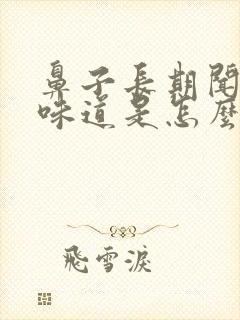 鼻子長期聞
味道是怎麼
飛雪淚